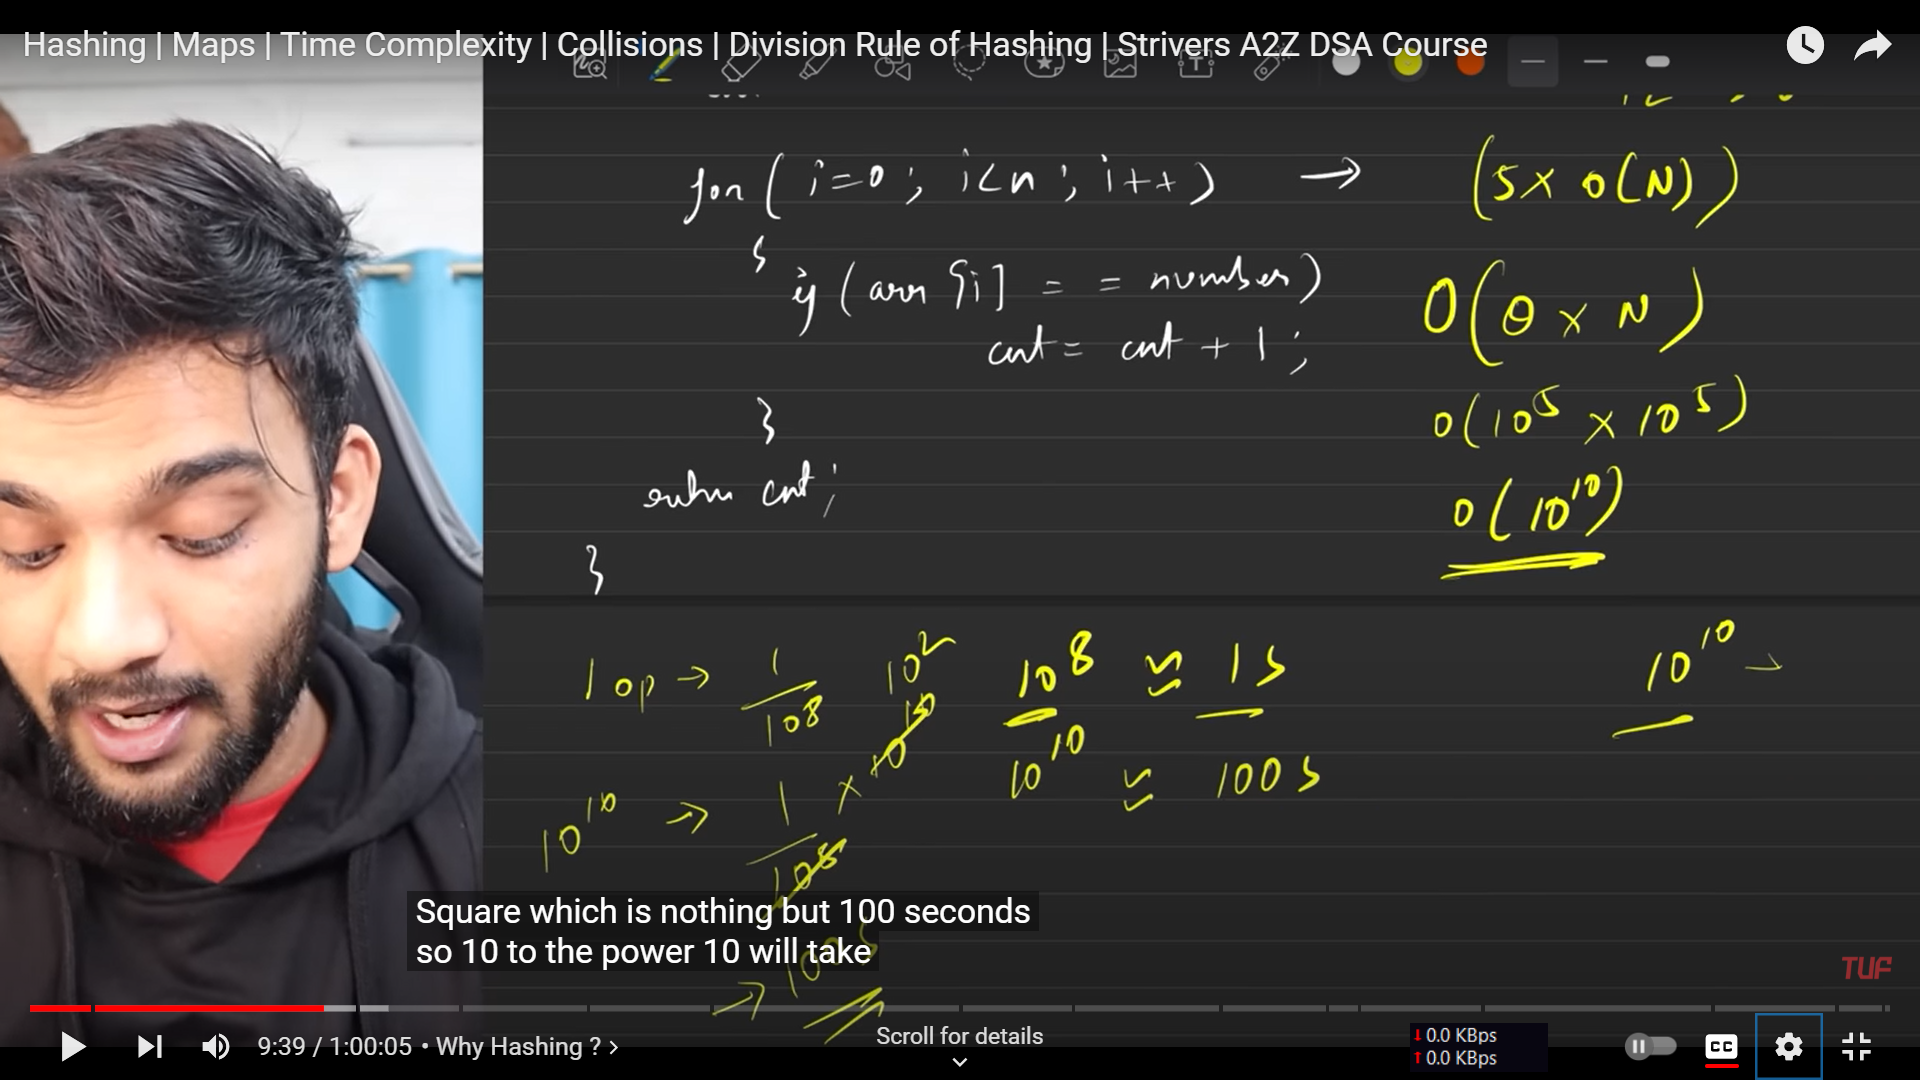 Hashing | Maps | Time Complexity | Collisions | Division Rule of Hashing | Strivers A2Z DSA Course
for ( i=0 ; i<n ; i++ ) → (5 x O(N))
{
if (arr[i] == number)
cnt = cnt + 1;
O(Q x N)
}
O(10^5 x 10^5)
return cnt;
O(10^10)
}
1 op → 1/10^8
10^8 ≈ 1s
10^10 →
10^10 ≈ 100s
10^10 → 1/10^8 x 10^10 10^2
→ 100s
Square which is nothing but 100 seconds
so 10 to the power 10 will take
TUF
9:39 / 1:00:05 • Why Hashing ? >
Scroll for details
0.0 KBps
0.0 KBps
CC